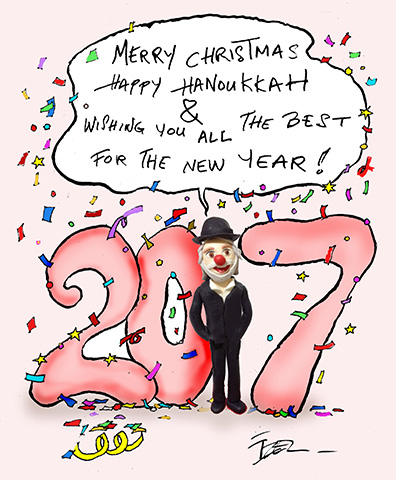 MERRY CHRISTMAS
HAPPY HANOUKKAH
&
WISHING YOU ALL THE BEST
FOR THE NEW YEAR!
207